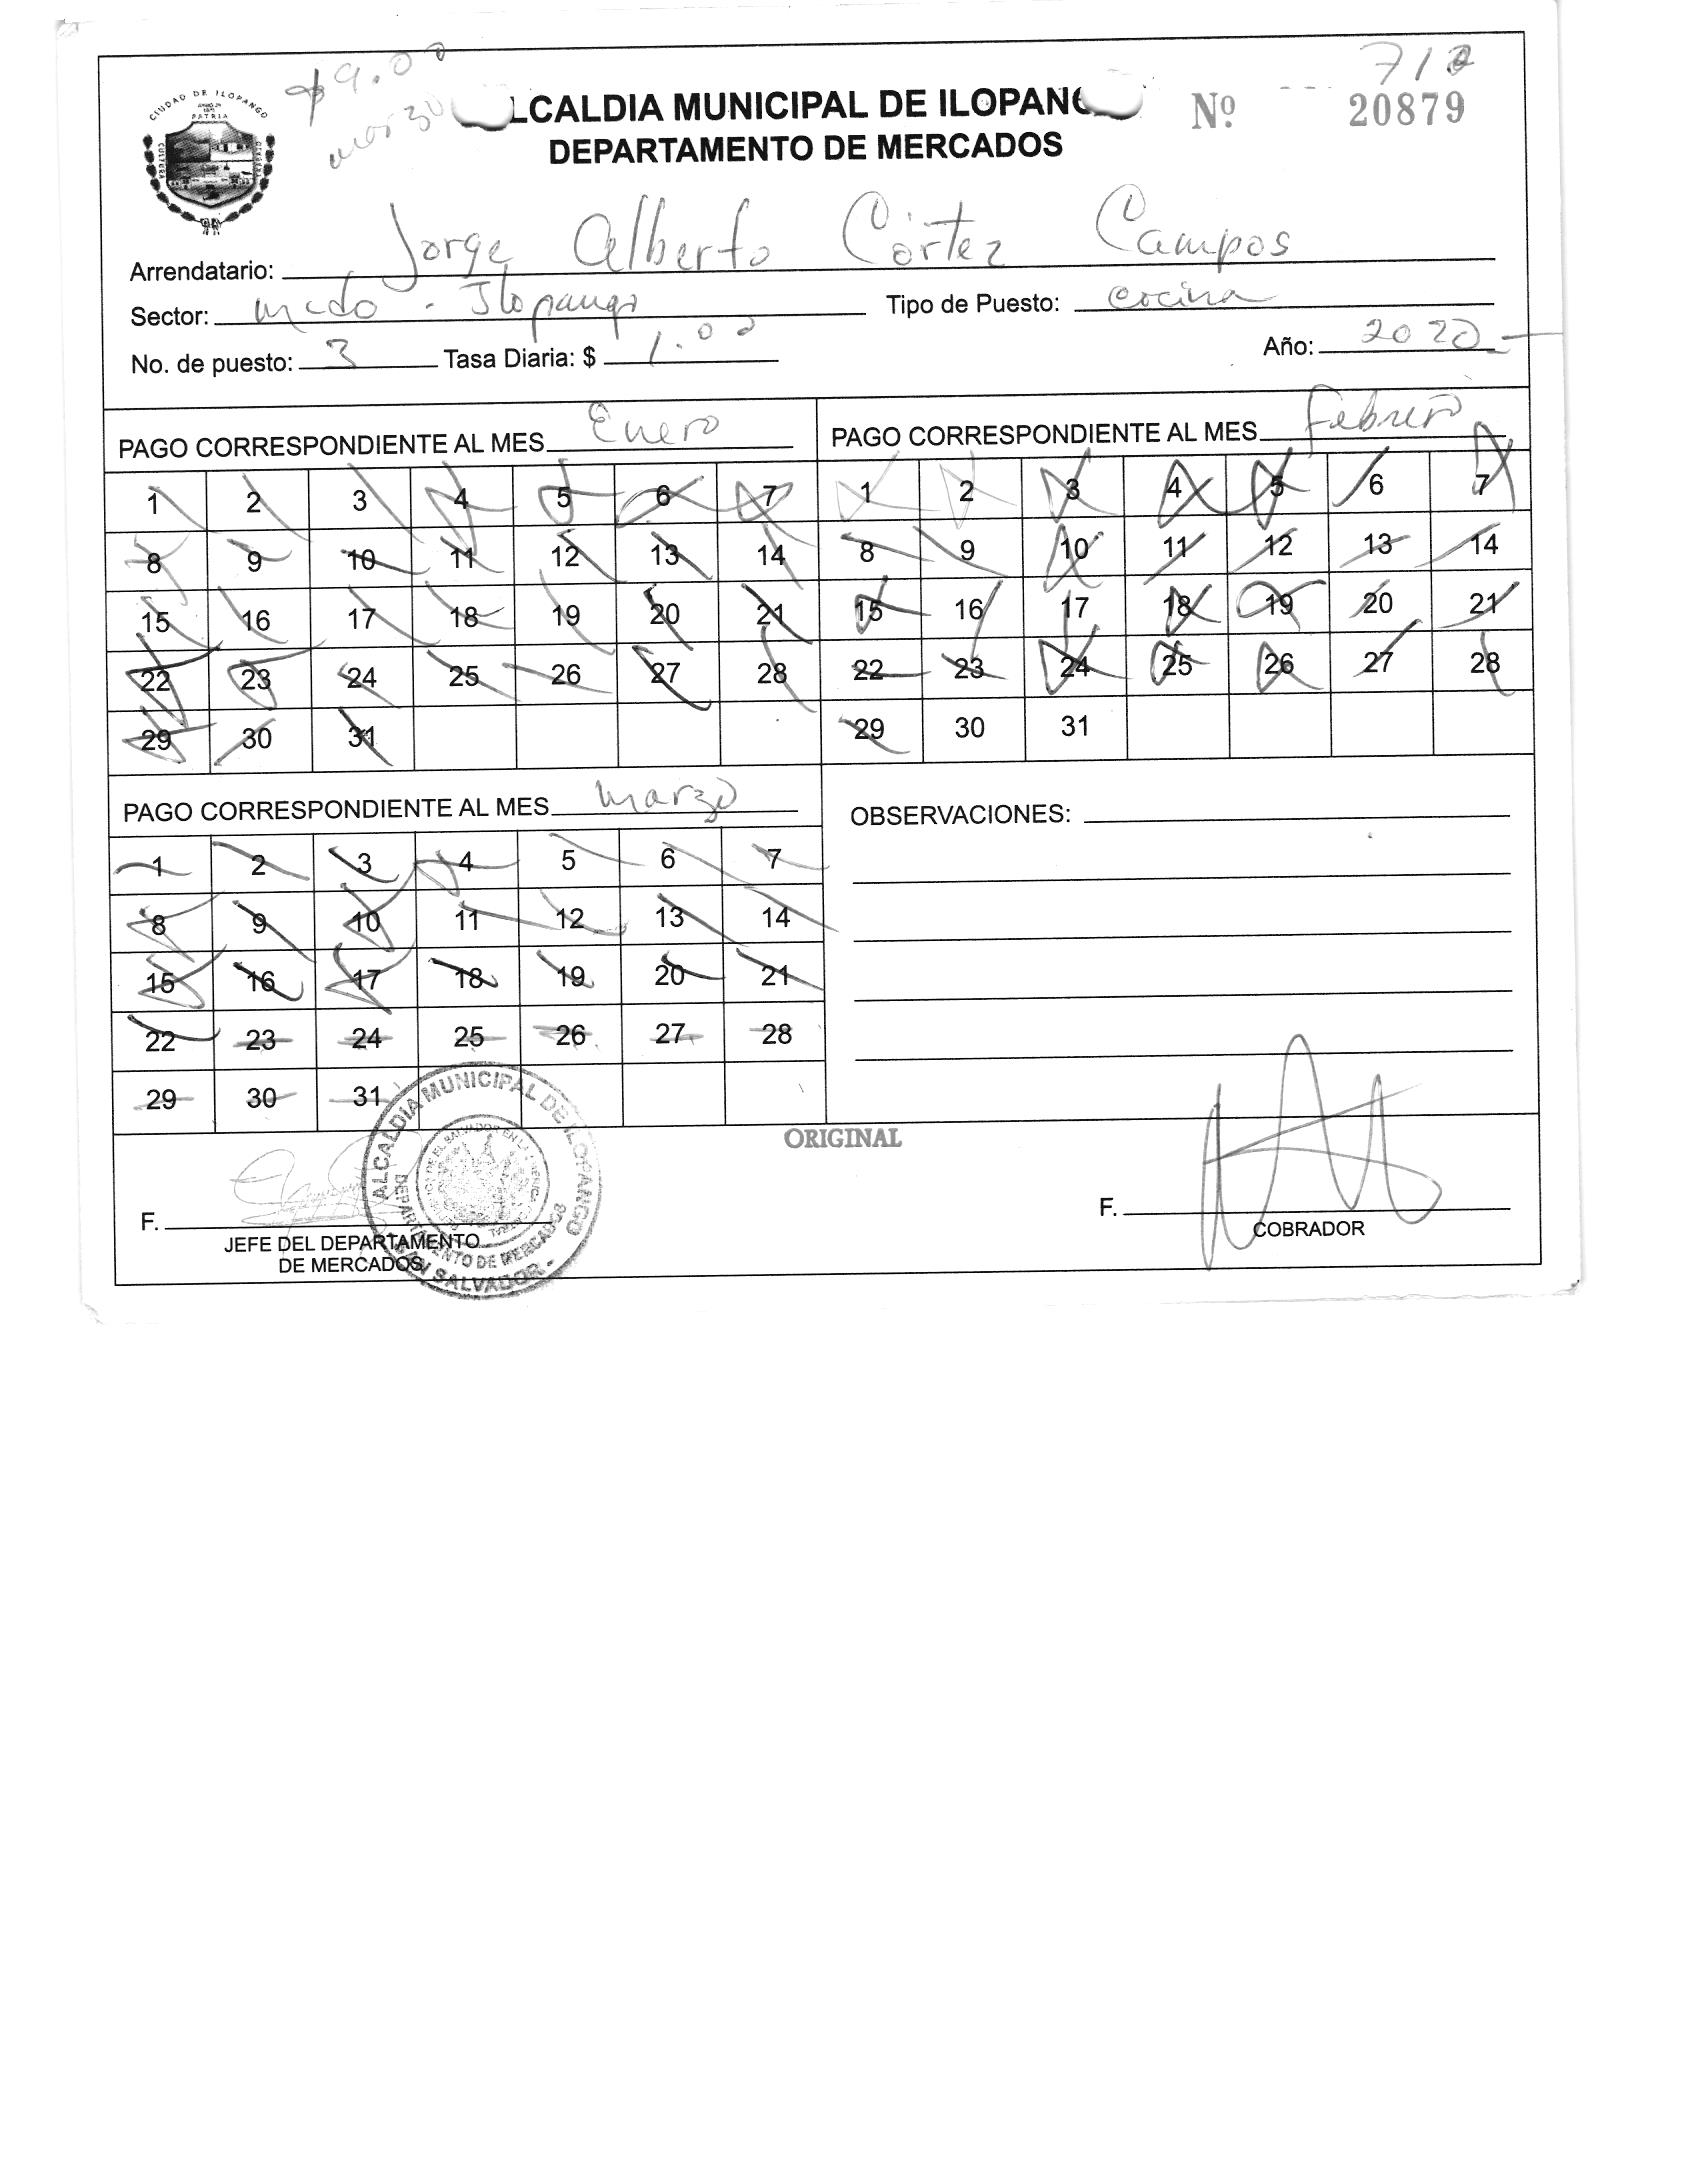 $9.00
marzo
712
CIUDAD DE ILOPANGO
PATRIA
CULTURA
LCALDIA MUNICIPAL DE ILOPANG
Nº 20879
DEPARTAMENTO DE MERCADOS
Arrendatario: Jorge Alberto Cortez Campos
Sector: mcdo - Ilopango Tipo de Puesto: cocina
No. de puesto: 3 Tasa Diaria: $ 1.00 Año: 2020
PAGO CORRESPONDIENTE AL MES Enero
1 2 3 4 5 6 7
8 9 10 11 12 13 14
15 16 17 18 19 20 21
22 23 24 25 26 27 28
29 30 31
PAGO CORRESPONDIENTE AL MES Febrero
1 2 3 4 5 6 7
8 9 10 11 12 13 14
15 16 17 18 19 20 21
22 23 24 25 26 27 28
29 30 31
PAGO CORRESPONDIENTE AL MES marzo
1 2 3 4 5 6 7
8 9 10 11 12 13 14
15 16 17 18 19 20 21
22 23 24 25 26 27 28
29 30 31
OBSERVACIONES:
ORIGINAL
ALCALDIA MUNICIPAL DE ILOPANGO
DEPARTAMENTO DE MERCADOS
SAN SALVADOR -
F.
JEFE DEL DEPARTAMENTO
DE MERCADOS
F.
COBRADOR